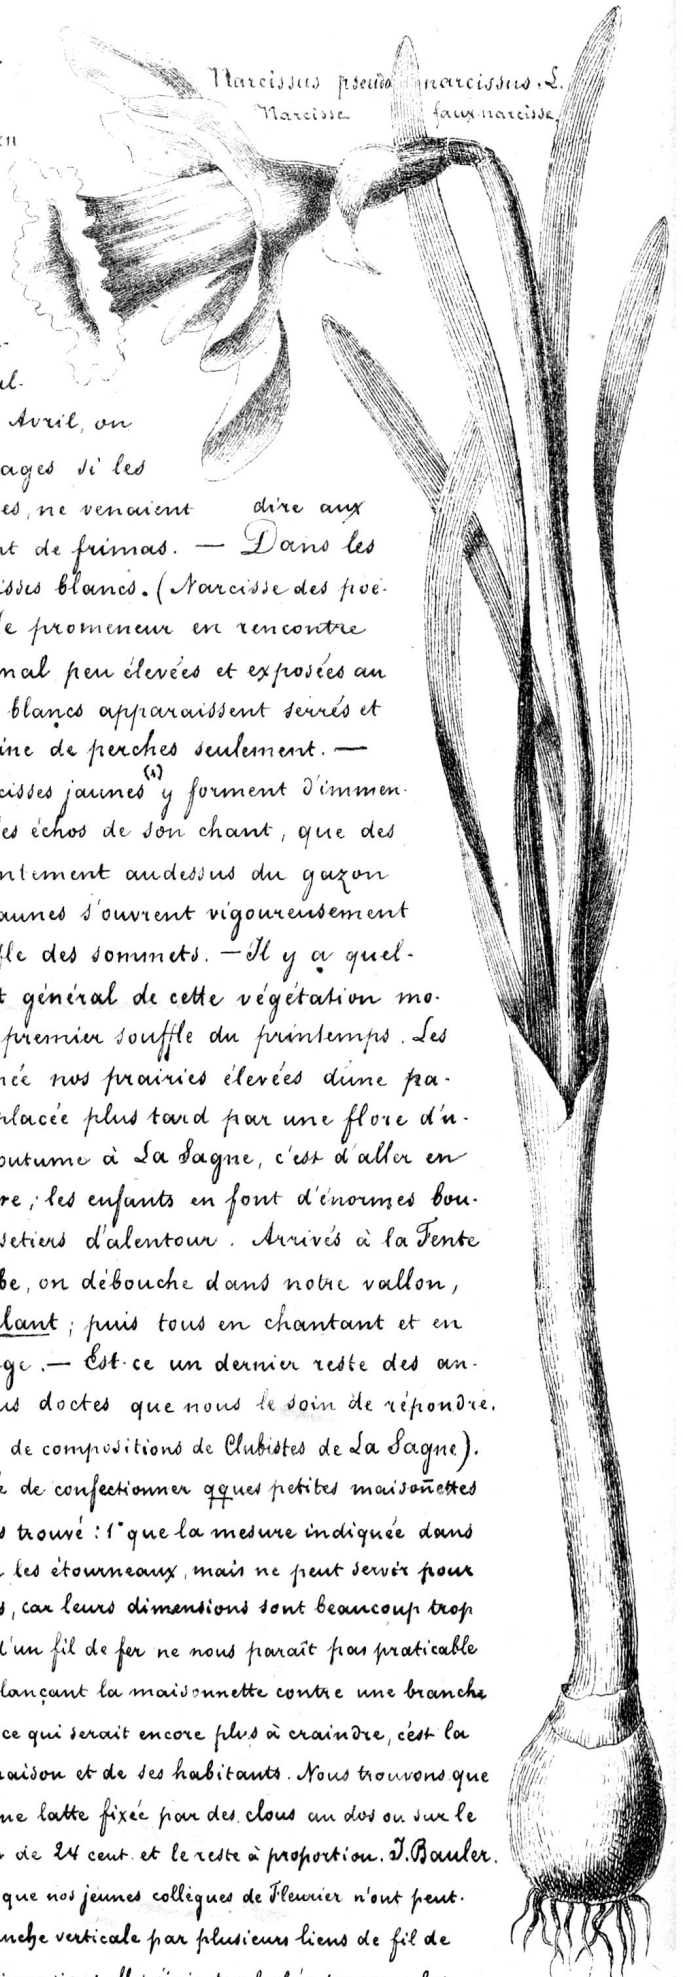 Narcissus pseudo narcissus. L.
Narcisse faux-narcisse.
en
al.
Avril, on
ages si les
es, ne venaient dire aux
nt de frimas. — Dans les
isses blancs. (Narcisse des poë-
le promeneur en rencontre
nal peu élevées et exposées au
blancs apparaissent serrés et
ine de perches seulement. —
cisses jaunes (1) y forment d'immen-
es échos de son chant, que des
ntement audessus du gazon
aunes s'ouvrent vigoureusement
fle des sommets. — Il y a quel-
t général de cette végétation mo-
premier souffle du printemps. Les
née nos prairies élevées d'une pa-
placée plus tard par une flore d'u-
outume à La Sagne, c'est d'aller en
re; les enfants en font d'énormes bou-
setiers d'alentour. Arrivés à la Tente
be, on débouche dans notre vallon,
lant; puis tous en chantant et en
ge. — Est-ce un dernier reste des an-
us doctes que nous le soin de répondre.
de compositions de Clubistes de La Sagne).
é de confectionner qques petites maisonnettes
s trouvé: 1° que la mesure indiquée dans
les étourneaux, mais ne peut servir pour
s, car leurs dimensions sont beaucoup trop
d'un fil de fer ne nous paraît pas praticable
lançant la maisonnette contre une branche
ce qui serait encore plus à craindre, c'est la
maison et de ses habitants. Nous trouvons que
ne latte fixée par des clous au dos ou sur le
r de 24 cent. et le reste à proportion. J. Bauler.
que nos jeunes collègues de Fleurier n'ont peut-
nche verticale par plusieurs liens de fil de